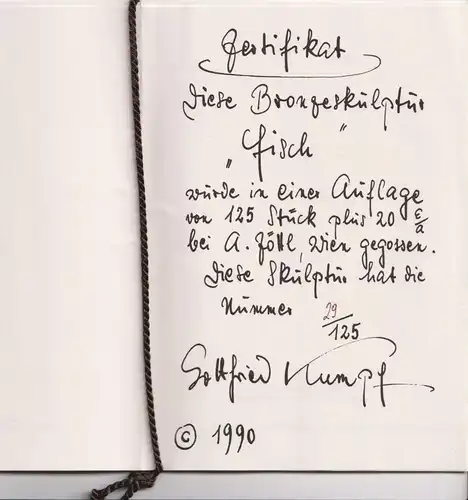 Zertifikat
Diese Bronzeskulptur
„Fisch"
wurde in einer Auflage
von 125 Stück plus 20 e/a
bei A. Zöttl, Wien gegossen.
Diese Skulptur hat die
Nummer 29/125
Gottfried Kumpf
© 1990